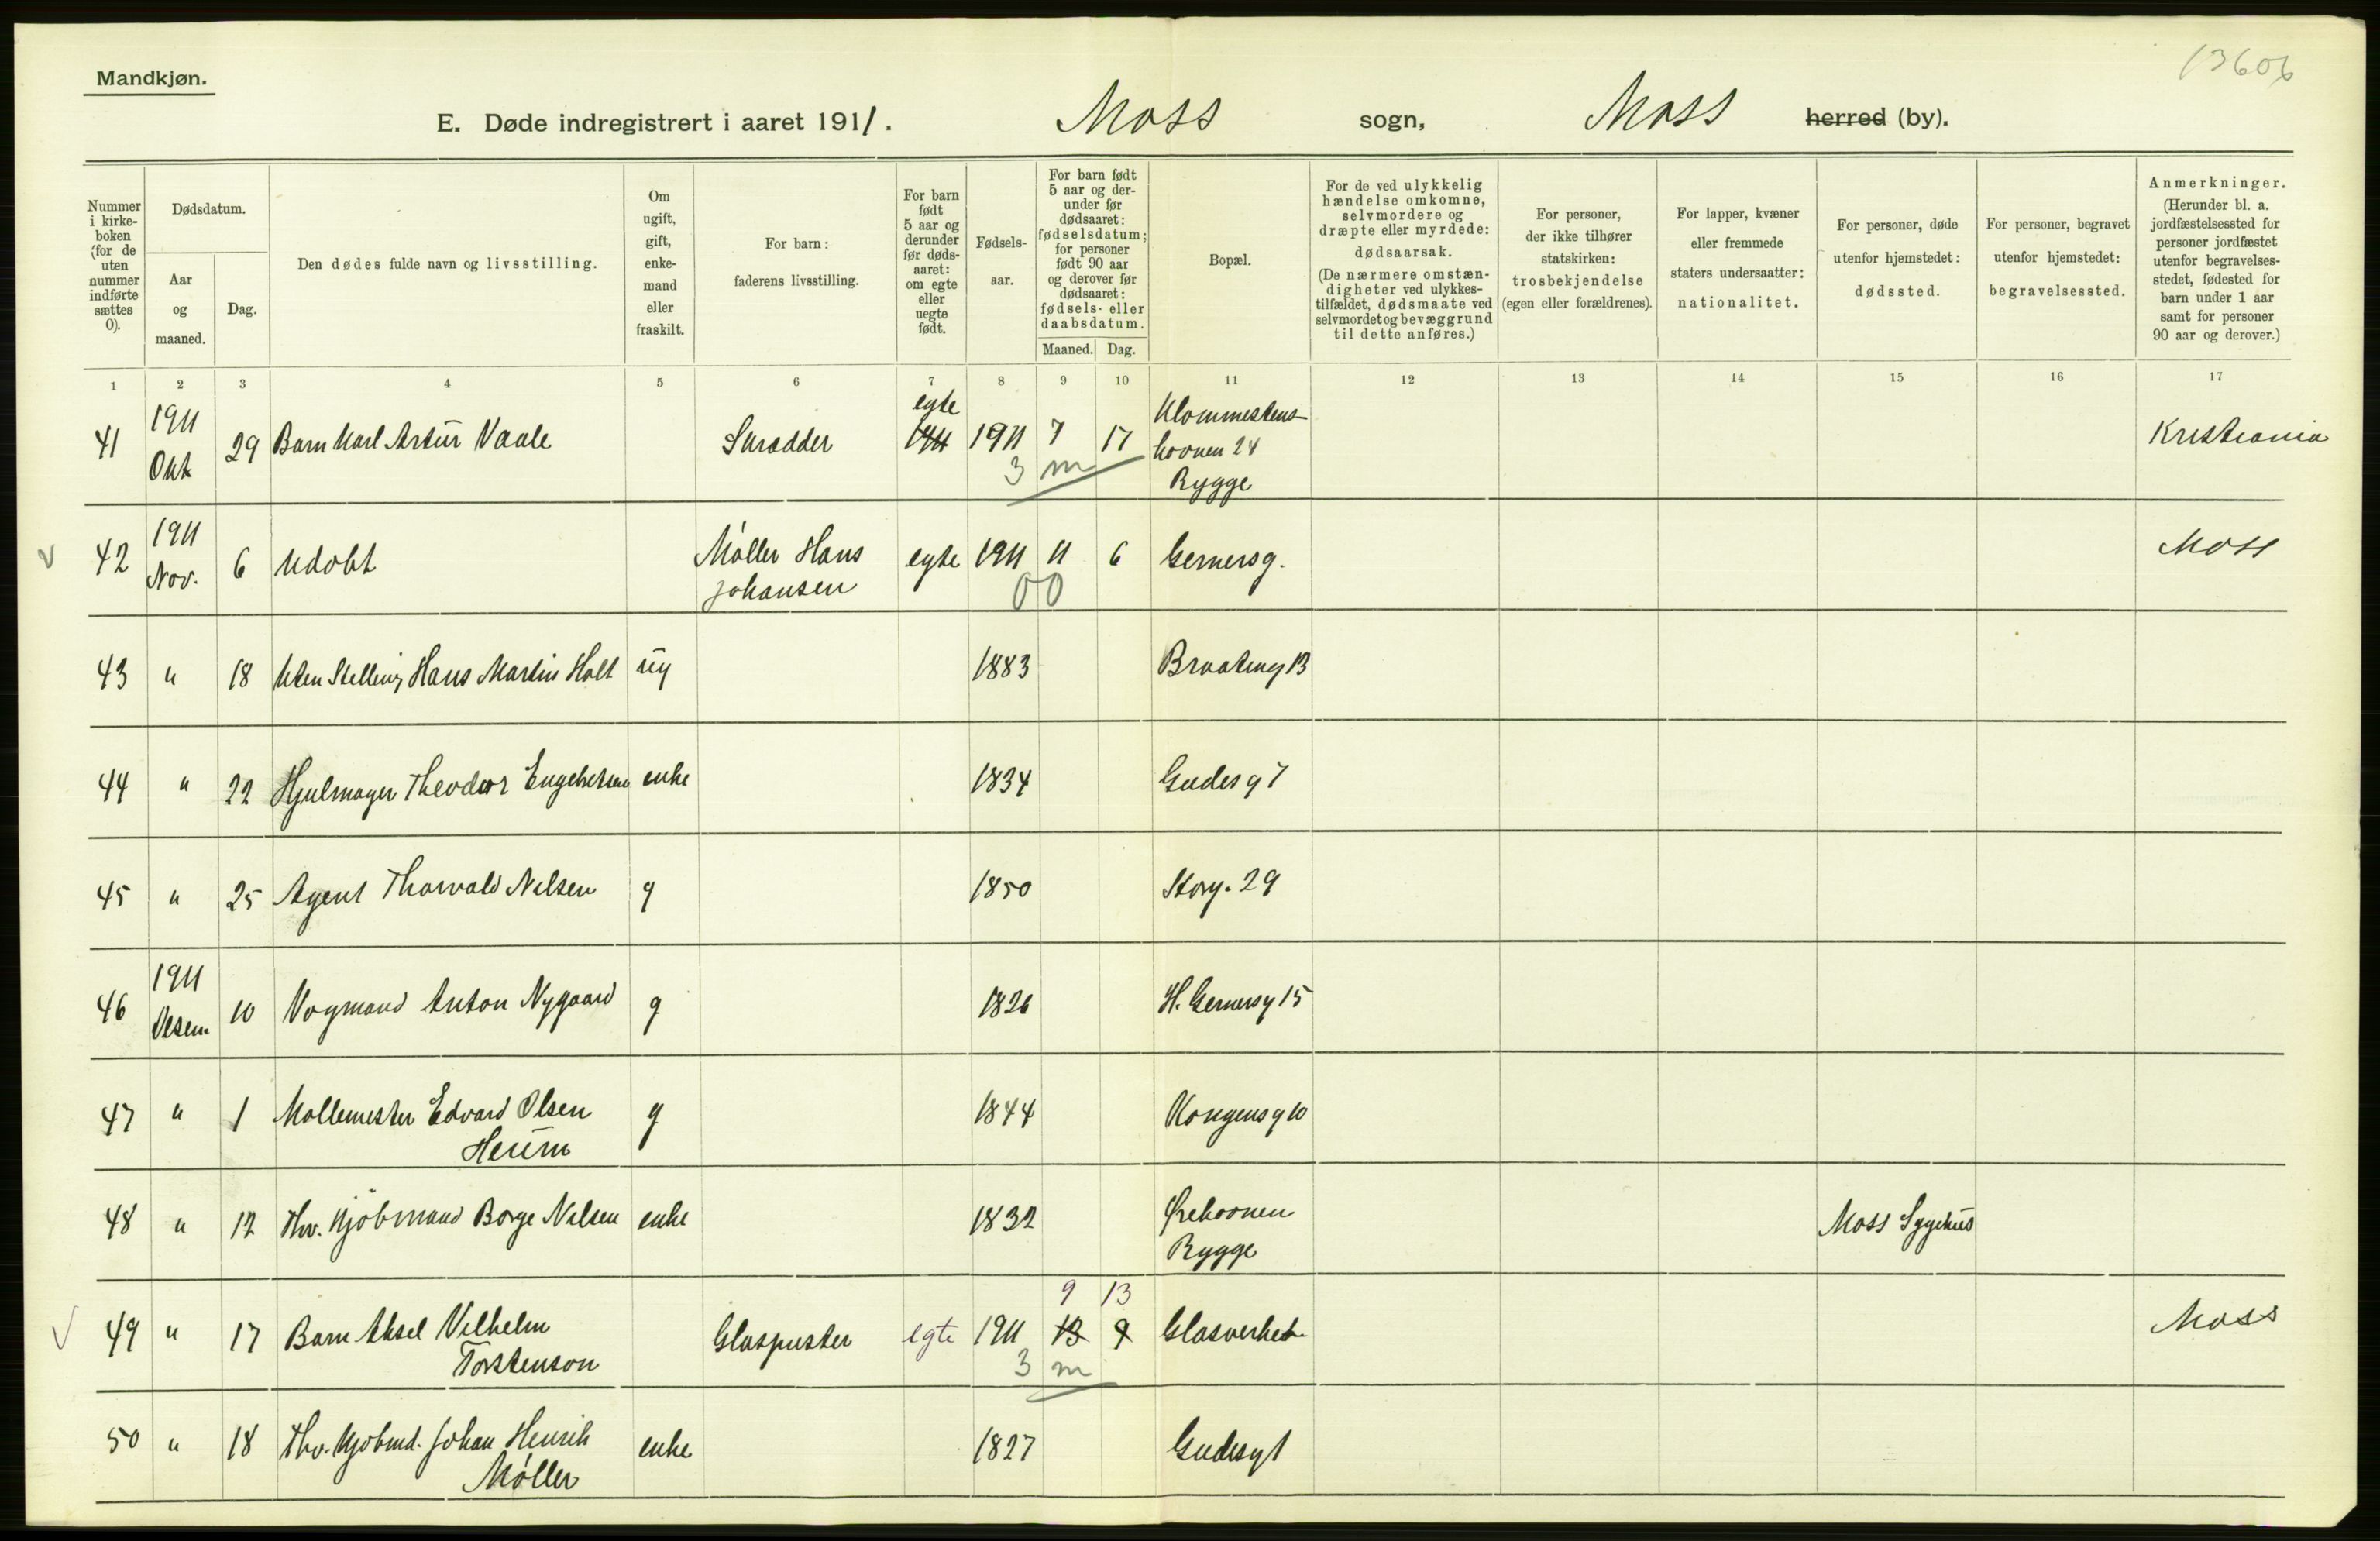 13606
Mandkjøn.
E. Døde indregistrert i aaret 1911. Moss sogn, Moss herred (by).
Nummer i kirke-boken (for de uten nummer indførte sættes 0).
Dødsdatum.
Aar og maaned.
Dag.
Den dødes fulde navn og livsstilling.
Om ugift, gift, enke-mand eller fraskilt.
For barn: faderens livsstilling.
For barn født 5 aar og derunder før døds-aaret: om egte eller uegte født.
Fødsels-aar.
For barn født 5 aar og der-under før dødsaaret: fødselsdatum; for personer født 90 aar og derover før dødsaaret: fødsels- eller daabsdatum.
Maaned. Dag.
Bopæl.
For de ved ulykkelig hændelse omkomne, selvmordere og dræpte eller myrdede: dødsaarsak. (De nærmere omstæn-digheter ved ulykkes-tilfældet, dødsmaate ved selvmordet og bevæggrund til dette anføres.)
For personer, der ikke tilhører statskirken: trosbekjendelse (egen eller forældrenes).
For lapper, kvæner eller fremmede staters undersaatter: nationalitet.
For personer, døde utenfor hjemstedet: dødssted.
For personer, begravet utenfor hjemstedet: begravelsessted.
Anmerkninger. (Herunder bl. a. jordfæstelsessted for personer jordfæstet utenfor begravelses-stedet, fødested for barn under 1 aar samt for personer 90 aar og derover.)
1 2 3 4 5 6 7 8 9 10 11 12 13 14 15 16 17
41 1911 Okt 29 Barn Karl Artur Vaale Skrædder egte 1911 1911 7 17 Kristiania
3 m Rygge
42 1911 Nov. 6 Udøbt Møller Hans Johansen egte 1911 11 6 Gernersg. Moss
00
43 " 18 Uten Stelling Hans Martin Holt ug 1883 Braateng 13
44 " 22 Hjulmager Theodor Engebretsen enke 1834 Gudesg 7
45 " 25 Agent Thorvald Nilsen g 1850 Storg. 29
46 1911 Desem 10 Vogmand Anton Nygaard g 1826 H. Gernersg 15
47 " 1 Møllemester Edvard Olsen Heum g 1844 Kongensg 10
48 " 12 Fhv. Kjøbmand Borge Nilsen enke 1832 Ørekroonen Rygge Moss Sygehus
49 " 17 Barn Aksel Vilhelm Torstenson Glaspuster egte 1911 9 13 13 9 Glasverket Moss
3 m
50 " 18 Fhv. Kjøbmd. Johan Henrik Møller enke 1827 Gudesg 1